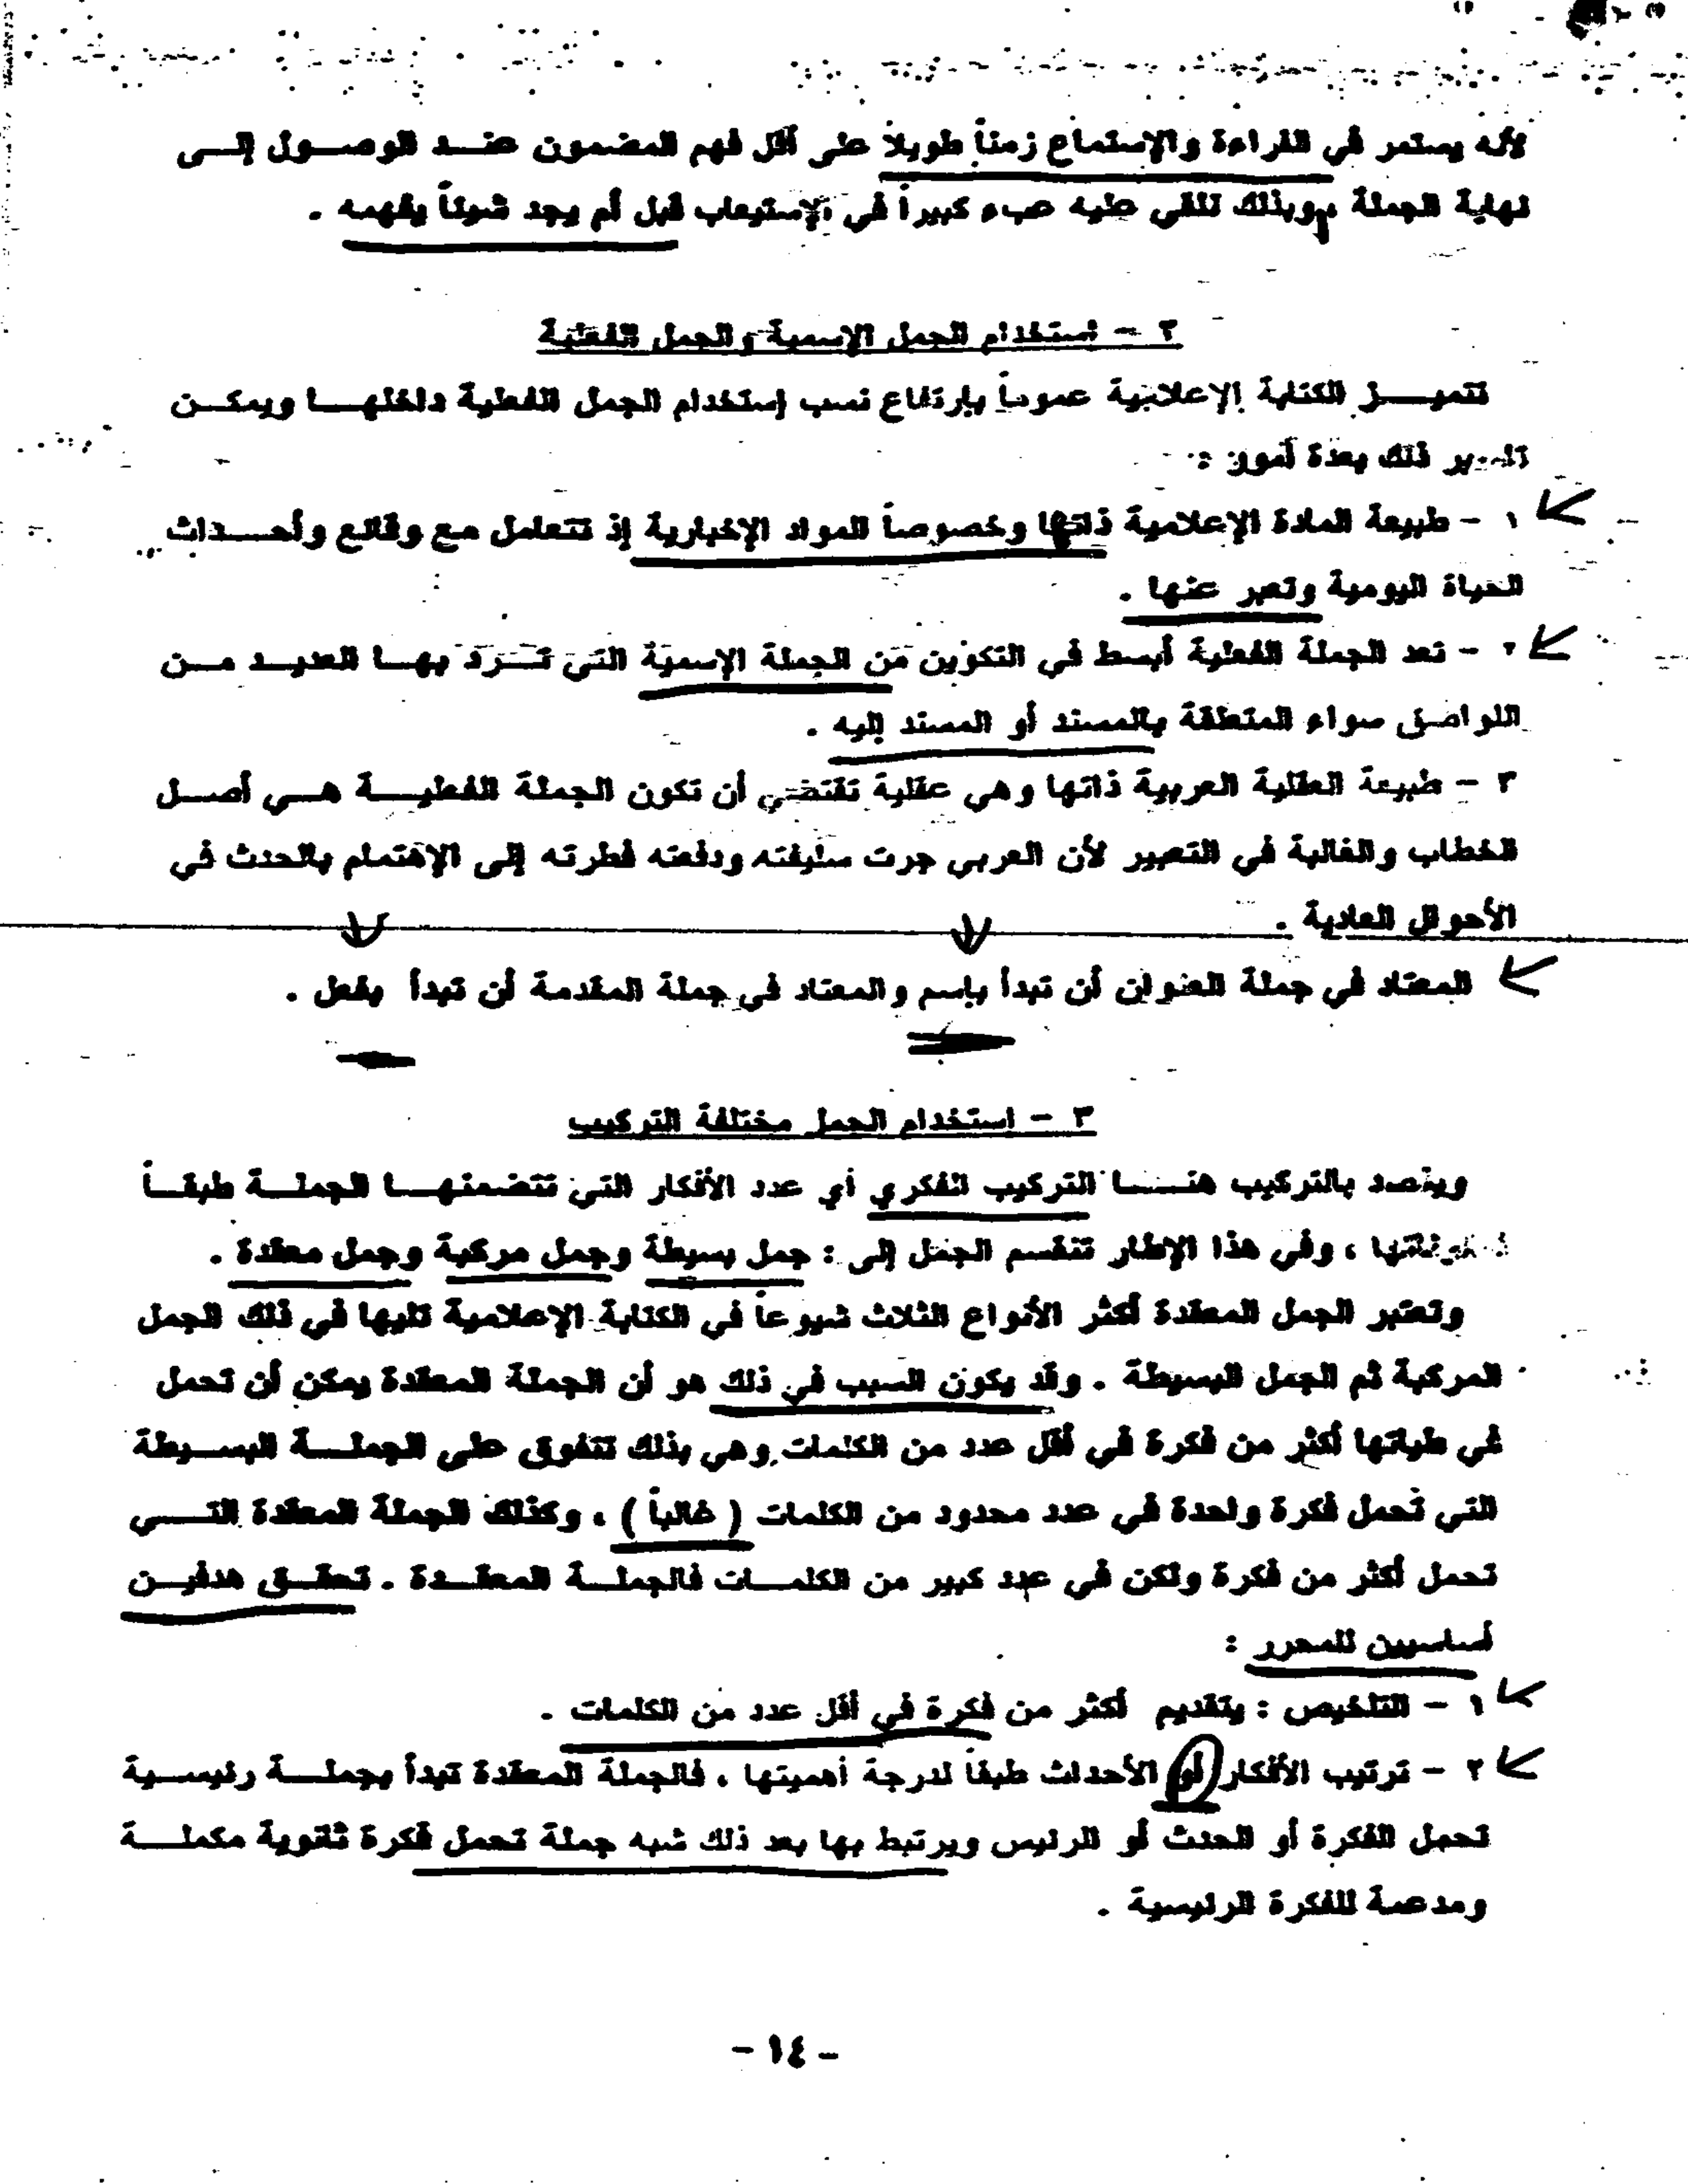 لأنه يستمر في القراءة والإستماع زمناً طويلاً على أقل فهم المضمون عنــد الوصــول إلــى
نهاية الجملة وبذلك تلقى عليه عبء كبيراً في الإستيعاب قبل أم يجد شيئاً يفهمه .
٢ - إستخدام الجمل الإسمية والجمل الفعلية
تتميــز الكتابة الإعلامية عموماً بإرتفاع نسب إستخدام الجمل الفعلية داخلهــا ويمكــن
ذلك بعدة أمور :
١ - طبيعة المادة الإعلامية ذاتها وخصوصاً المواد الإخبارية إذ تتعامل مع وقائع وأحــداث
الحياة اليومية وتعبر عنها .
٢ - تعد الجملة الفعلية أبسط في التكوين من الجملة الإسمية التي تــرد بهــا العديــد مــن
اللواصق سواء المتعلقة بالمسند أو المسند إليه .
٣ - طبيعة العقلية العربية ذاتها وهي عقلية تقتضي أن تكون الجملة الفعليــة هــي أصــل
الخطاب والغالبة في التعبير لأن العربي جرت سليقته ودفعته فطرته إلى الإهتمام بالحدث في
الأحوال العادية .
المعتاد في جملة العنوان أن تبدأ بإسم والمعتاد في جملة المقدمة أن تبدأ بفعل .
٣ - إستخدام الجمل مختلفة التركيب
ويقصد بالتركيب هنــا التركيب الفكري أي عدد الأفكار التي تتضمنهــا الجملــة طبقــاً
، وفي هذا الإطار تنقسم الجمل إلى : جمل بسيطة وجمل مركبة وجمل معقدة .
وتعتبر الجمل المعقدة أكثر الأنواع الثلاث شيوعاً في الكتابة الإعلامية تليها في ذلك الجمل
المركبة ثم الجمل البسيطة . وقد يكون السبب في ذلك هو أن الجملة المعقدة يمكن أن تحمل
في طياتها أكثر من فكرة في أقل عدد من الكلمات وهي بذلك تتفوق على الجملــة البســيطة
التي تحمل فكرة واحدة في عدد محدود من الكلمات ( غالباً ) ، وكذلك الجملة المعقدة التــي
تحمل أكثر من فكرة ولكن في عدد كبير من الكلمــات فالجملــة المعقــدة . تحقــق هدفيــن
أساسيين للمحرر :
١ - التلخيص : بتقديم أكثر من فكرة في أقل عدد من الكلمات .
٢ - ترتيب الأفكار أو الأحداث طبقاً لدرجة أهميتها ، فالجملة المعقدة تبدأ بجملــة رئيســية
تحمل الفكرة أو الحدث أو الرئيس ويرتبط بها بعد ذلك شبه جملة تحمل فكرة ثانوية مكملــة
ومدعمة للفكرة الرئيسية .
- ١٤ -